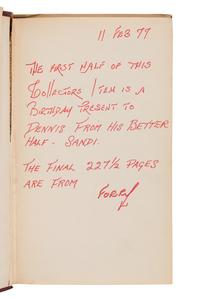 11 FEB 77
THE FIRST HALF OF THIS
COLLECTORS ITEM IS A
BIRTHDAY PRESENT TO
DENNIS FROM HIS BETTER
HALF - SANDI.
THE FINAL 227½ PAGES
ARE FROM
FORRY